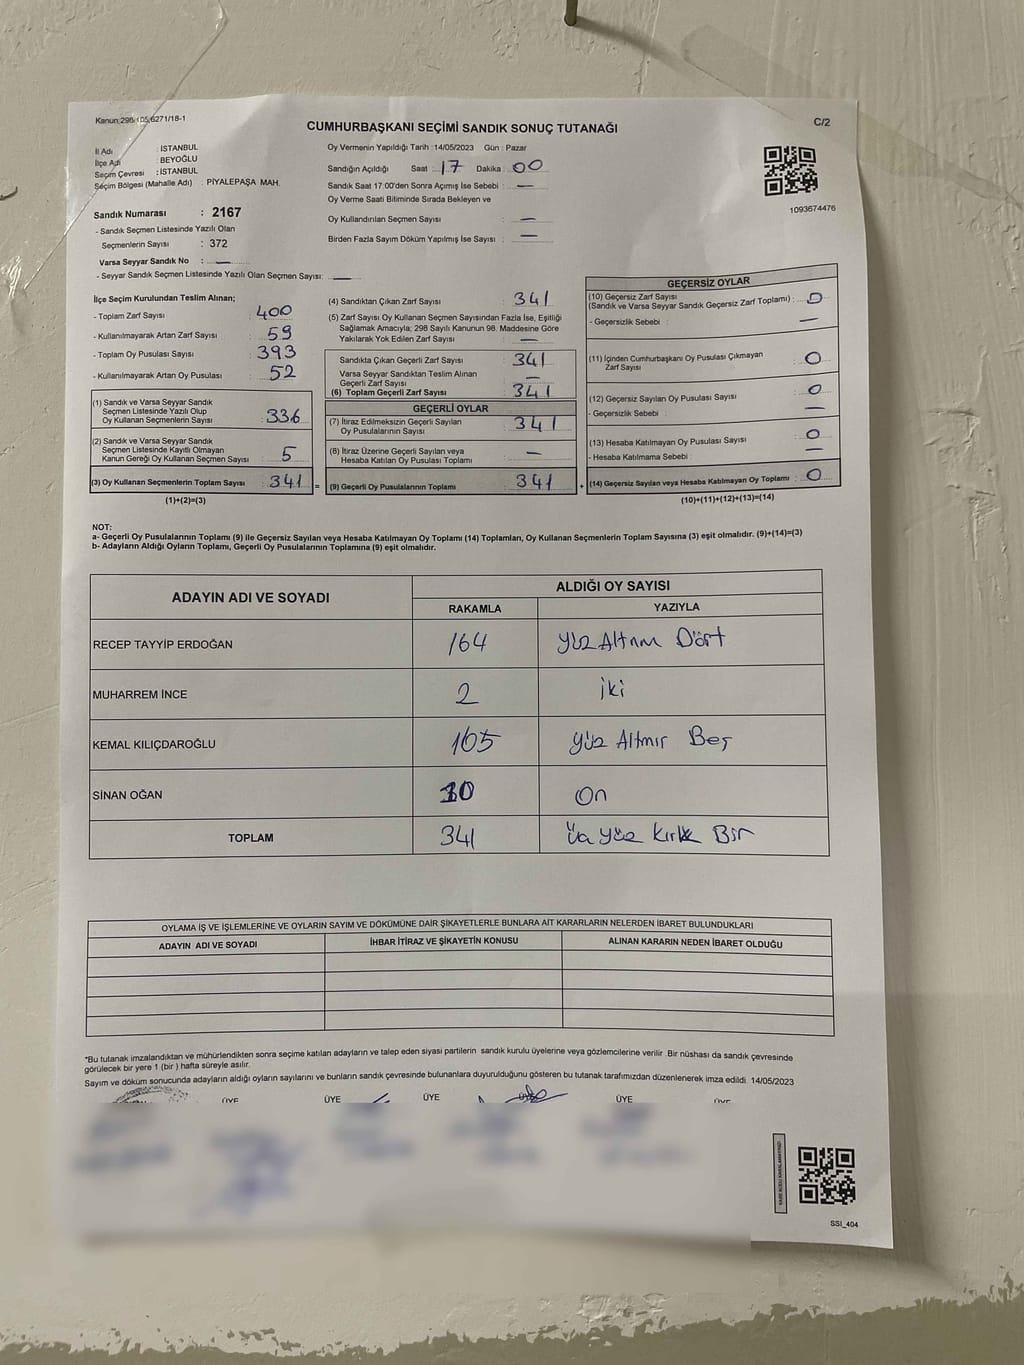 Kanun;298/105,6271/18-1
C/2
CUMHURBAŞKANI SEÇİMİ SANDIK SONUÇ TUTANAĞI
İl Adı : İSTANBUL
İlçe Adı : BEYOĞLU
Seçim Çevresi : İSTANBUL
Seçim Bölgesi (Mahalle Adı) : PİYALEPAŞA MAH.
Sandık Numarası : 2167
- Sandık Seçmen Listesinde Yazılı Olan
Seçmenlerin Sayısı : 372
Varsa Seyyar Sandık No : —
- Seyyar Sandık Seçmen Listesinde Yazılı Olan Seçmen Sayısı: —
Oy Vermenin Yapıldığı Tarih :14/05/2023 Gün : Pazar
Sandığın Açıldığı Saat : 17 Dakika : 00
Sandık Saat 17:00'den Sonra Açımış İse Sebebi : —
Oy Verme Saati Bitiminde Sırada Bekleyen ve
Oy Kullandırılan Seçmen Sayısı : —
Birden Fazla Sayım Döküm Yapılmış İse Sayısı : —
1093674476
İlçe Seçim Kurulundan Teslim Alınan;
- Toplam Zarf Sayısı : 400
- Kullanılmayarak Artan Zarf Sayısı : 59
- Toplam Oy Pusulası Sayısı : 393
- Kullanılmayarak Artan Oy Pusulası : 52
(1) Sandık ve Varsa Seyyar Sandık
Seçmen Listesinde Yazılı Olup
Oy Kullanan Seçmenlerin Sayısı : 336
(2) Sandık ve Varsa Seyyar Sandık
Seçmen Listesinde Kayıtlı Olmayan
Kanun Gereği Oy Kullanan Seçmen Sayısı : 5
(3) Oy Kullanan Seçmenlerin Toplam Sayısı : 341 =
(1)+(2)=(3)
(4) Sandıktan Çıkan Zarf Sayısı : 341
(5) Zarf Sayısı Oy Kullanan Seçmen Sayısından Fazla İse, Eşitliği
Sağlamak Amacıyla; 298 Sayılı Kanunun 98. Maddesine Göre
Yakılarak Yok Edilen Zarf Sayısı : —
Sandıkta Çıkan Geçerli Zarf Sayısı : 341
Varsa Seyyar Sandıktan Teslim Alınan
Geçerli Zarf Sayısı : —
(6) Toplam Geçerli Zarf Sayısı : 341
GEÇERLİ OYLAR
(7) İtiraz Edilmeksizin Geçerli Sayılan
Oy Pusulalarının Sayısı : 341
(8) İtiraz Üzerine Geçerli Sayılan veya
Hesaba Katılan Oy Pusulası Toplamı : —
(9) Geçerli Oy Pusulalarının Toplamı : 341 +
GEÇERSİZ OYLAR
(10) Geçersiz Zarf Sayısı
(Sandık ve Varsa Seyyar Sandık Geçersiz Zarf Toplamı) : 0
- Geçersizlik Sebebi : —
(11) İçinden Cumhurbaşkanı Oy Pusulası Çıkmayan
Zarf Sayısı : 0
(12) Geçersiz Sayılan Oy Pusulası Sayısı : 0
- Geçersizlik Sebebi : —
(13) Hesaba Katılmayan Oy Pusulası Sayısı : 0
- Hesaba Katılmama Sebebi : —
(14) Geçersiz Sayılan veya Hesaba Katılmayan Oy Toplamı : 0
(10)+(11)+(12)+(13)=(14)
NOT:
a- Geçerli Oy Pusulalarının Toplamı (9) ile Geçersiz Sayılan veya Hesaba Katılmayan Oy Toplamı (14) Toplamları, Oy Kullanan Seçmenlerin Toplam Sayısına (3) eşit olmalıdır. (9)+(14)=(3)
b- Adayların Aldığı Oyların Toplamı, Geçerli Oy Pusulalarının Toplamına (9) eşit olmalıdır.
ADAYIN ADI VE SOYADI ALDIĞI OY SAYISI
RAKAMLA YAZIYLA
RECEP TAYYİP ERDOĞAN 164 Yüz Altmış Dört
MUHARREM İNCE 2 iki
KEMAL KILIÇDAROĞLU 165 Yüz Altmış Beş
SİNAN OĞAN 10 On
TOPLAM 341 Üç Yüz Kırk Bir
OYLAMA İŞ VE İŞLEMLERİNE VE OYLARIN SAYIM VE DÖKÜMÜNE DAİR ŞİKAYETLERLE BUNLARA AİT KARARLARIN NELERDEN İBARET BULUNDUKLARI
ADAYIN ADI VE SOYADI İHBAR İTİRAZ VE ŞİKAYETİN KONUSU ALINAN KARARIN NEDEN İBARET OLDUĞU
*Bu tutanak imzalandıktan ve mühürlendikten sonra seçime katılan adayların ve talep eden siyasi partilerin sandık kurulu üyelerine veya gözlemcilerine verilir .Bir nüshası da sandık çevresinde
görülecek bir yere 1 (bir ) hafta süreyle asılır.
Sayım ve döküm sonucunda adayların aldığı oyların sayılarını ve bunların sandık çevresinde bulunanlara duyurulduğunu gösteren bu tutanak tarafımızdan düzenlenerek imza edildi. 14/05/2023
ÜYE ÜYE ÜYE ÜYE ÜYE ÜYE
SSI_404